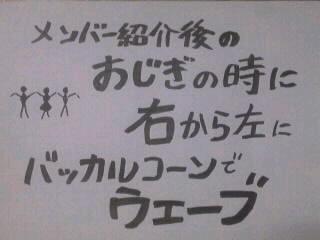 メンバー紹介後の
おじぎの時に
右から左に
バッカルコーンで
ウェーブ